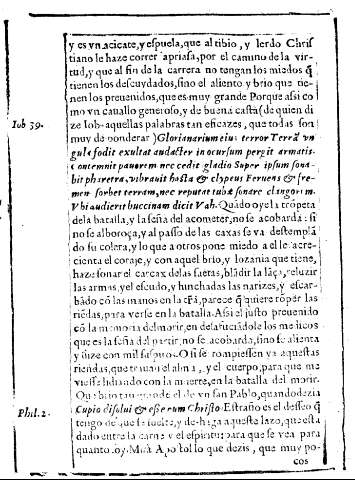 y es vn acicate, y espuela, que al tibio, y lerdo Chris
tiano le haze correr apriasa, por el camino de la vir-
tud, y que al fin de la carrera no tengan los miedos q̃
tienen los descuydados, sino el aliento y brio que tie-
nen los preuenidos, que es muy grande Porque asi co
mo vn cauallo generoso, y de buena casta (de quien di
Iob 39.
ze Iob aquellas palabras tan eficazes, que todas son
muy de ponderar) Gloria narium eius terror Terrã vn
gula fodit exultat audacter in ocursum pergit armatis.
Contemnit pauorem nec cedit gladio Super ipsum sona-
bit pharetra, vibrauit hasta & clypeus Feruens & fre-
mens sorbet terram, nec reputat tubæ sonare clangorem.
Vbi audierit buccinam dicit Vah. Quãdo oye la trõpeta
de la batalla, y la seña del acometer, no se acobarda: si
no se alboroça, y al passo de las caxas se va destemplã
do su colera, y lo que a otros pone miedo a el le acre-
cienta el coraje, y con aquel brio, y lozania que tiene,
haze sonar el carcax de las saetas, blãdir la lãça, reluzir
las armas, y el escudo, y hinchadas las narizes, y escar-
bãdo cõ las manos en la trã, parece q̃ quiere rõper las
riẽdas, para verse en la batalla. Asi el justo preuenido
cõ la memoria del morir, en desafuciãdole los medicos
que es la seña del partir, no se acobarda, sino se alienta
y dize con mil sapuos. O si se rompiessen ya aquestas
riendas, que trauan el alma, y el cuerpo, para que me
viesse lidiando con la muerte, en la batalla del morir.
Que brio tan grande el de vn san Pablo, quando dezia
Phil. 2.
Cupio disolui & esse cum Christo. Estraño es el desseo q̃
tengo de que se suelte, y deshaga aqueste lazo, que esta
dado entre la carne y el espiritu: para que se vea para
quanto soy. Mirà Apostol lo que dezis, que muy po
cos